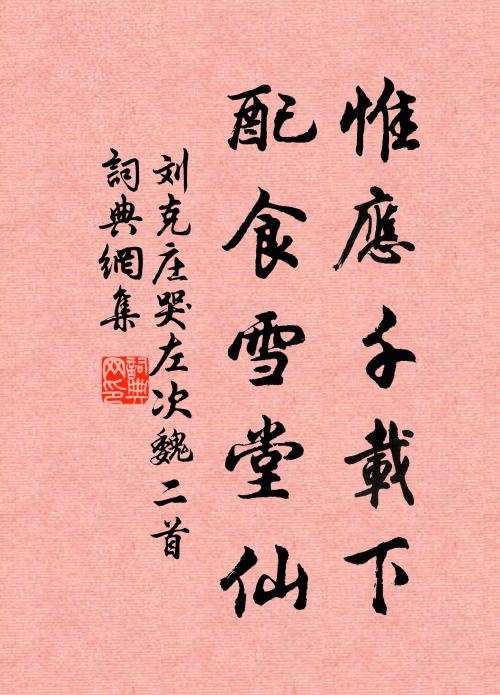 惟應千載下
配食雪堂仙
刘克庄哭左次魏二首
詞典網集
詞典网印